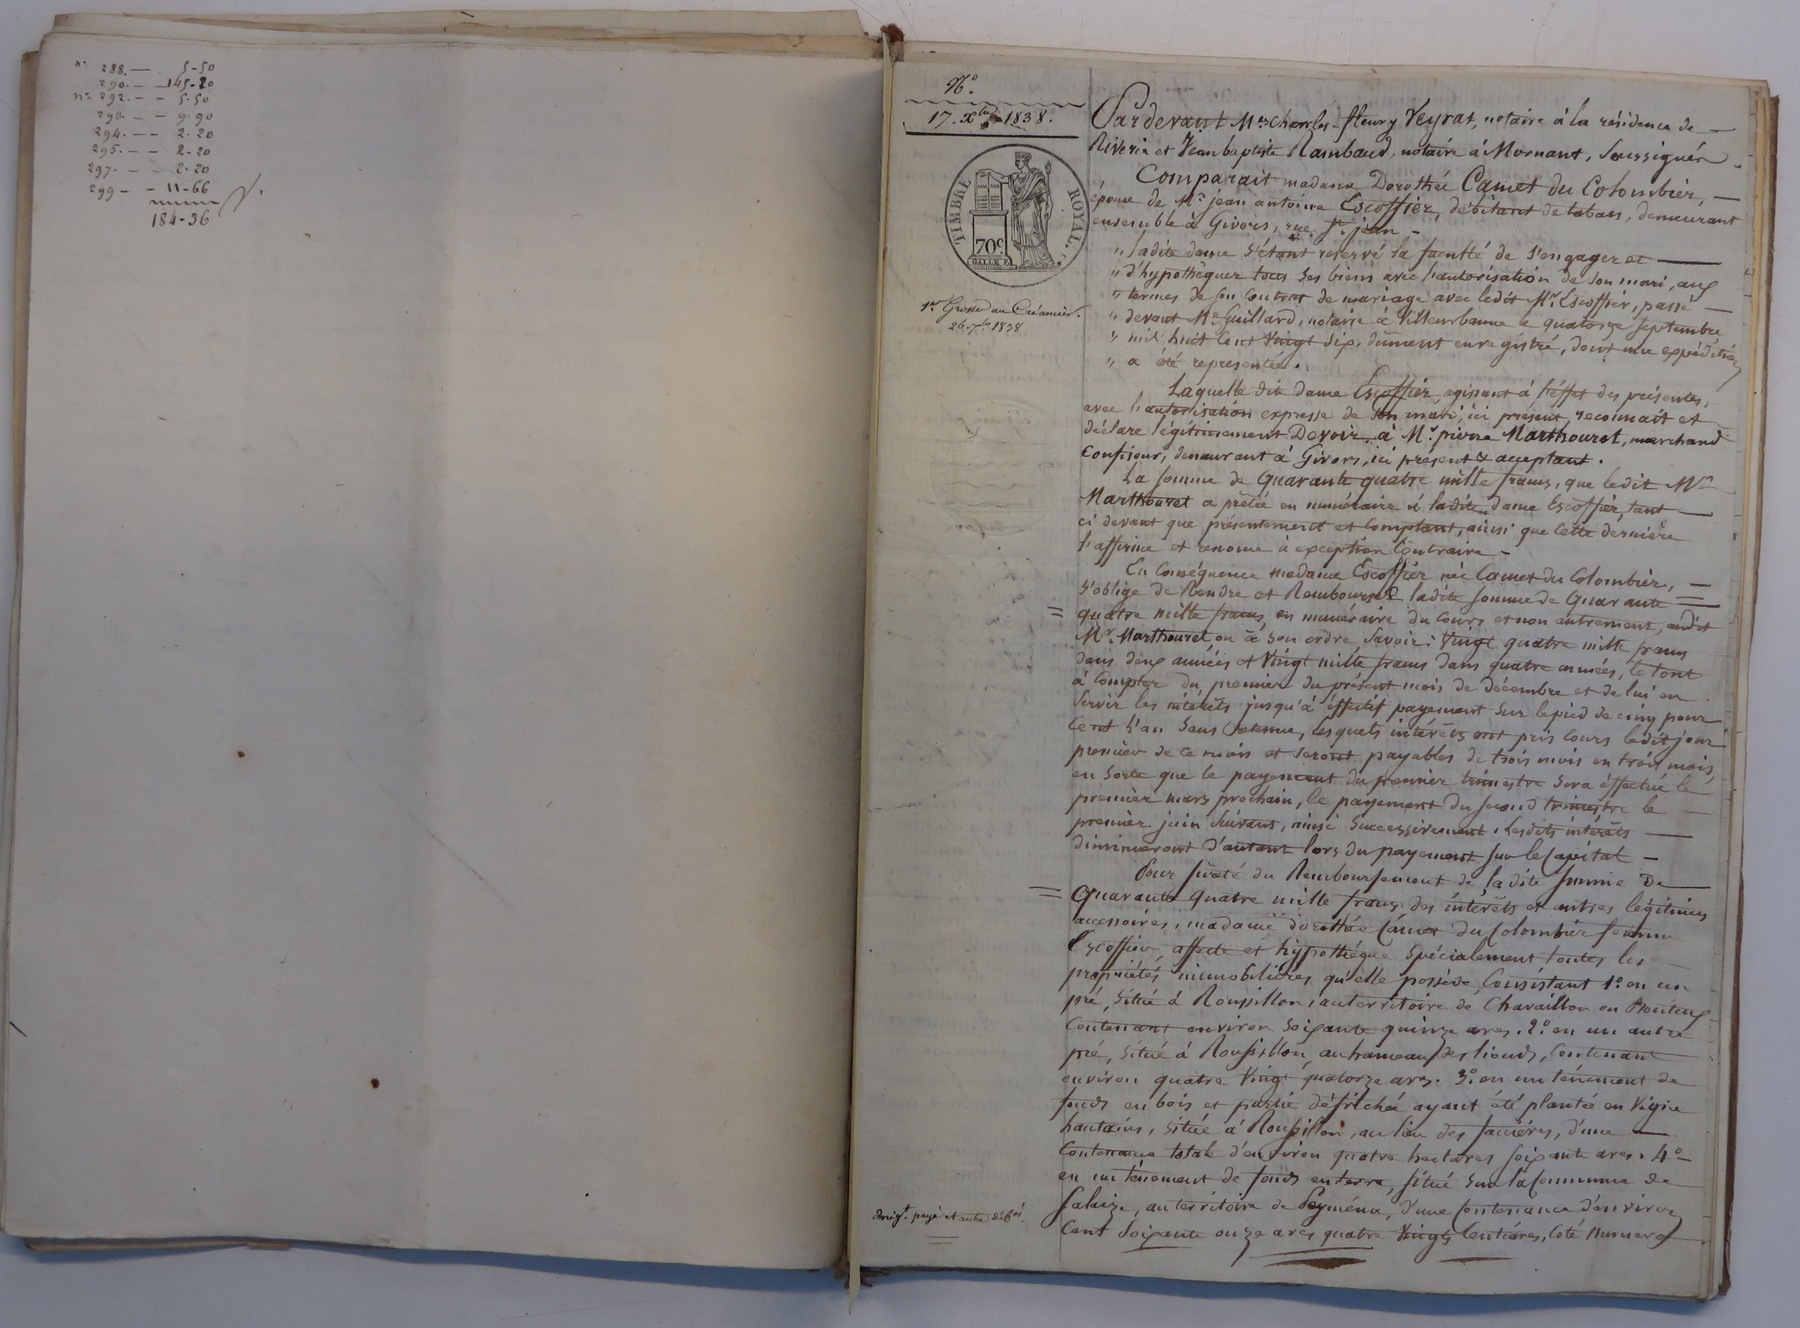 n° 288. — 5-50
290. — — 145-20
n° 292. — — 5-50
298 — — 9-90
294. — — 2-20
295. — — 2-20
297. — — 2-20
299 — — 11-66
184-36
N°.
17. Xbre 1838.
TIMBRE ROYAL.
70c
GALLE F.
1re Grosse au Créancier.
26. Xbre 1838
Pardevant Mes Charles-fleury Veyrat, notaire à la résidence de
Riverie et Jeanbaptiste Rambaud, notaire à Mornant, Soussignés
Comparait madame Dorothée Camet du Colombier,
épouse de Mr jean antoine Escoffier, débitant de tabacs, demeurant
ensemble à Givors, rue St. jean
" ladite dame s'étant réservé la faculté de s'engager et
" d'hypothéquer tous ses biens avec l'autorisation de son mari, aux
" termes de son contrat de mariage avec ledit Mr. Escoffier, passé
" devant Me Guillard, notaire à Villeurbanne le quatorze septembre
" mil huit cent vingt six, dûment enregistré, dont une expédition
" a été représentée.
Laquelle dite dame Escoffier, agissant à l'effet des présentes,
avec l'autorisation expresse de son mari, ici présent, reconnait et
déclare légitimement Devoir à Mr. pierre Marthouret, marchand
Confiseur, demeurant à Givors, ici présent & acceptant.
La somme de Quarante quatre mille francs, que ledit Mr
Marthouret a prêtée en numéraire à ladite dame Escoffier, tant
ci devant que présentement et comptant, ainsi que cette dernière
l'affirme et renonce à exception contraire
En Conséquence madame Escoffier née Camet du Colombier,
S'oblige de Rendre et Rembourser ladite somme de Quarante
quatre mille francs, en numéraire du cours et non autrement, audit
Mr. Marthouret ou à son ordre savoir: Vingt quatre mille francs
dans deux années et Vingt mille francs dans quatre années, le tout
à compter du premier du présent mois de décembre et de lui en
Servir les intérêts jusqu'à éffectif payement sur le pied de cinq pour
Cent l'an sans retenue, lesquels intérêts ont pris cours ledit jour
premier de ce mois et seront payables de trois mois en trois mois,
en sorte que le payement du premier trimestre sera éffectué le
premier mars prochain, le payement du second trimestre le
premier juin suivant, ainsi successivement. Lesdits intérêts
diminueront d'autant lors du payement sur le Capital
Pour sûreté du Remboursement de ladite somme de
Quarante quatre mille francs des intérêts et autres légitimes
accessoires, madame dorothée Camet du Colombier femme
Escoffier affecte et hypothèque spécialement toutes les
propriétés immobilières qu'elle possède, Consistant 1°. en un
pré, Situé à Roussillon, au territoire de Chavaillon ou
Contenant environ soixante quinze ares. 2°. en un autre
pré, situé à Roussillon, au hameau des , Contenant
environ quatre Vingt quatorze ares. 3°. en un ténement de
fonds en bois et partie défrichée ayant été plantée en Vigne
hautains, situé à Roussillon, au lieu des , d'une
Contenance totale d'environ quatre hectares soixante ares. 4°
en un ténement de fonds en terre, situé sur la Commune de
Salaize, au territoire de , d'une Contenance d'environ
Cent soixante onze ares quatre Vingts Centiares, Coté Numero